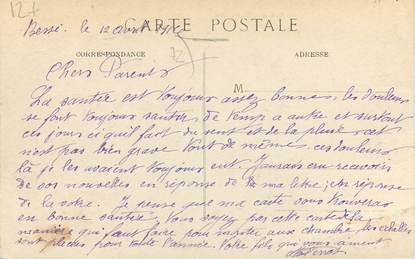 124
Bessé. le 12 avril
CARTE POSTALE
CORRESPONDANCE
ADRESSE
Chers Parents
M
La santée est toujour assez bonne, les douleurs
se font toujour santir, de temp a autre et surtout
ces jours ci qu'il fait du vent et de la pluie cet
n'est pas bien grave tout de même. ces douleurs
là je les avaient toujour eut. J'aurais cru recevoir
de vos nouvelles en réponse de la ma lettre; en réponse
de la votre. Je pense que ma carte vous trouveras
en bonne santée. Vous voyez par cette carte la
manière qu'il faut faire pour monter aux chambre les echelles
sont placées pour toute l'année. Votre fils qui vous aiment